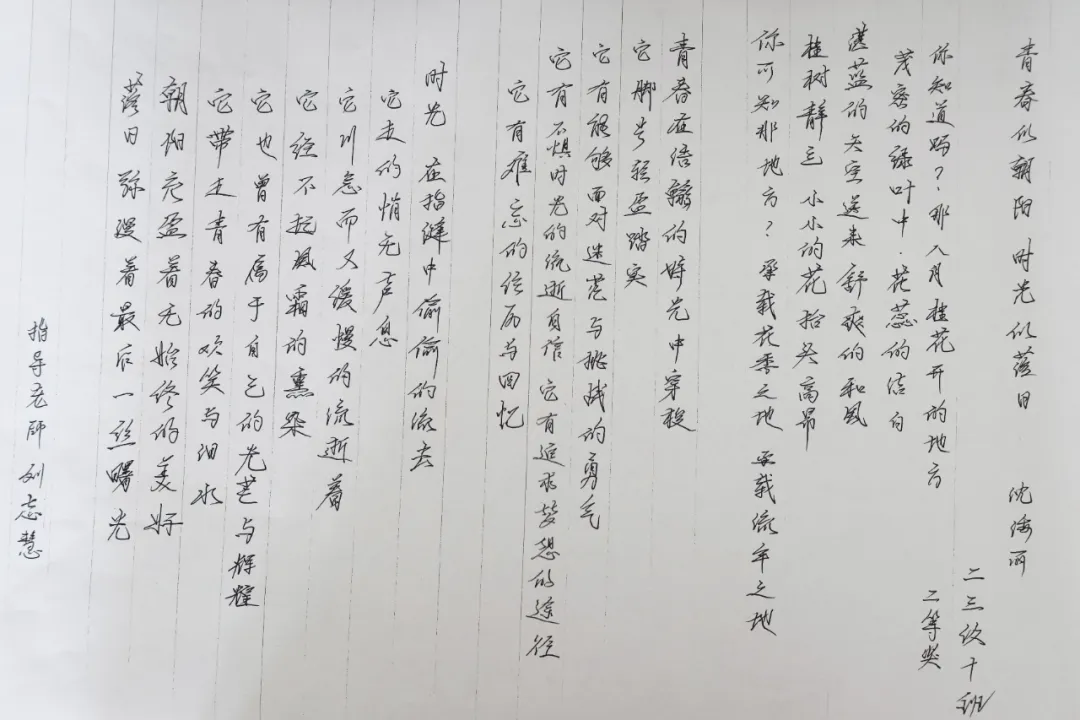 青春似朝阳 时光似落日 沈倩丽
二三级十班
二等奖
你知道吗？那八月桂花开的地方
茂密的绿叶中·花蕊的洁白
湛蓝的天空送来舒爽的和风
桂树静立 小小的花抬头高昂
你可知那地方？承载花季之地 承载流年之地
青春在倍 的时光中穿梭
它脚步轻盈踏实
它有能够面对迷茫与挑战的勇气
它有不惧时光的流逝自信 它有追求梦想的途径
它有难忘的经历与回忆
时光 在指缝中偷偷的流去
它走的悄无声息
它川急而又缓慢的流逝着
它经不起风霜的熏染
它也曾有属于自己的光芒与辉煌
它带走青春的欢笑与泪水
朝阳充盈着无始终的美好
落日弥漫着最后一丝曙光
指导老师 刘志慧